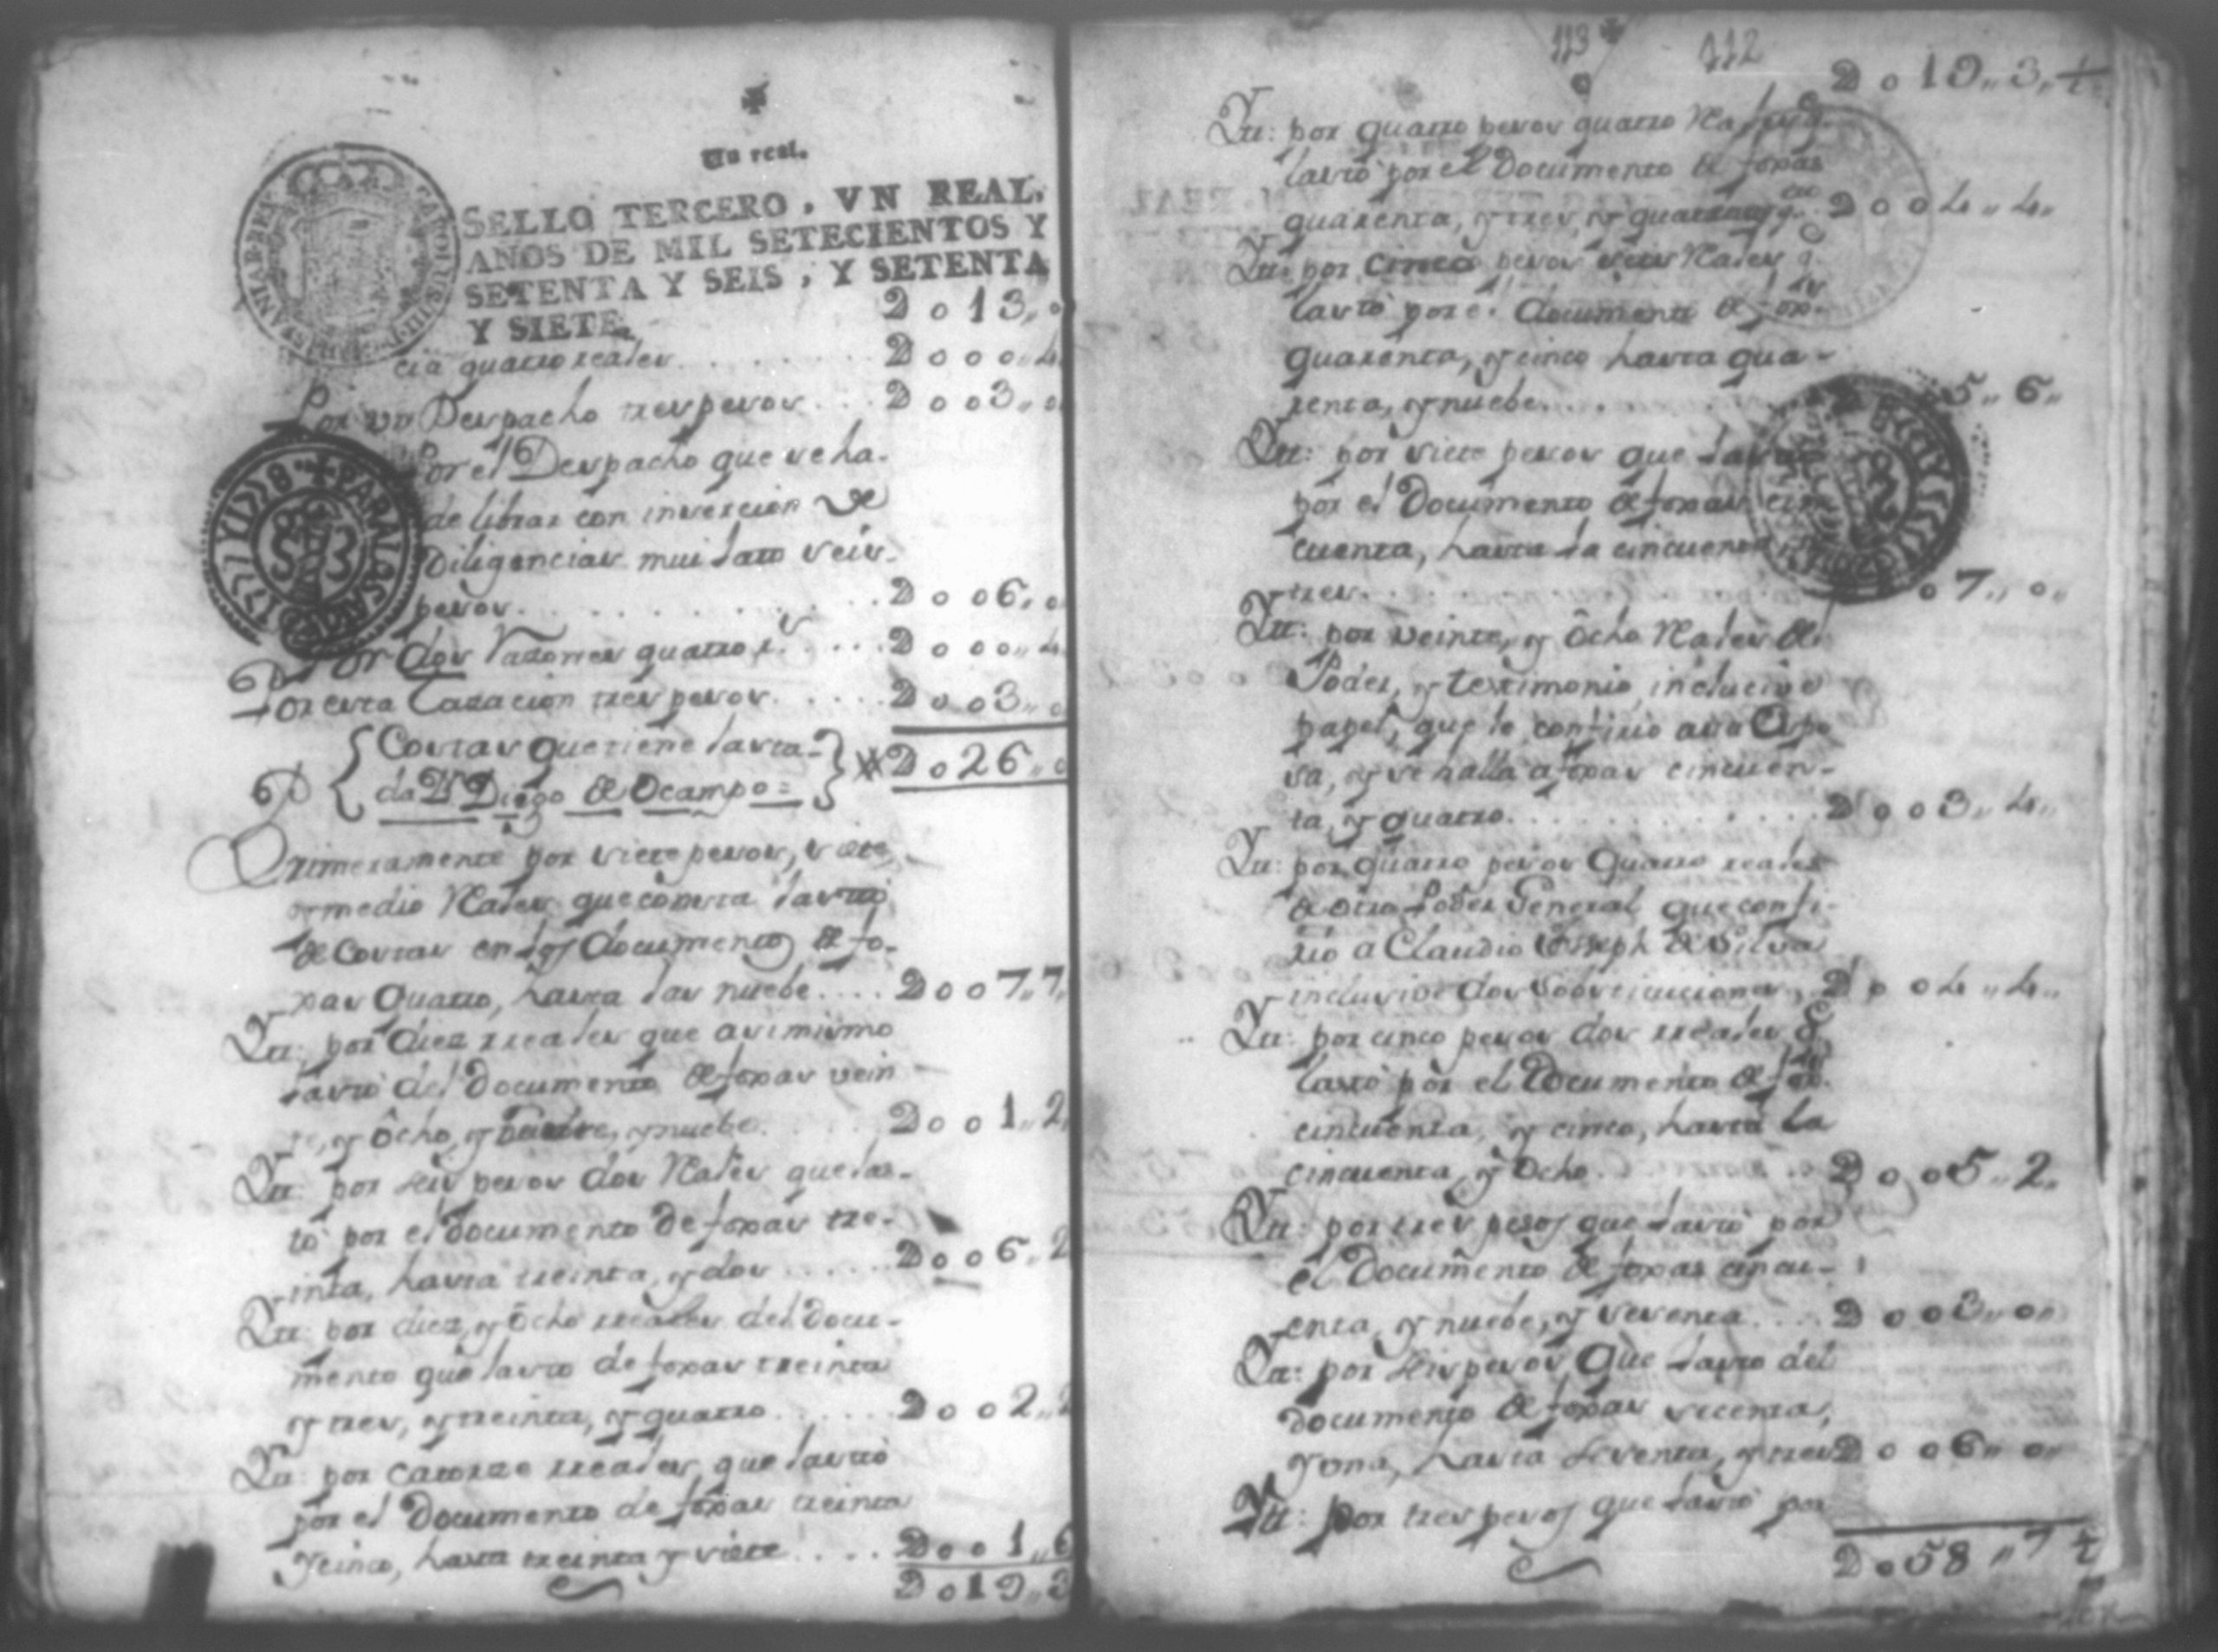 Un real.
SELLO TERCERO, VN REAL,
AÑOS DE MIL SETECIENTOS Y
SETENTA Y SEIS, Y SETENTA
Y SIETE.
HISPANIAR·REX CAROLUS·III·
D o 13,, o
cia quatro reales . . . . . D o o o ,, 4
Por un Despacho tres pesos . . . D o o 3 ,, o
Por el Despacho que se ha.
de librar con insercion de
Diligencias mui lato seis.
pesos . . . . . . D o o 6 ,, o
Por dos Razones quatro r.s . . . . D o o o ,, 4
Por esta Tazacion tres pesos . . . . D o o 3 ,, o
PARA LOS AÑOS D 1777 Y 1778
Costas que tiene lasta-
das Dn Diego de Ocampo = D o 26 ,, o
Primeramente por siete pesos, siete,
y medio Reales que consta lastó
de Costas en los documentos de fo-
xas Quatro, hasta las nuebe . . . . D o o 7 ,, 7
Ytt: por diez rreales que asimismo
lastó del Documento de foxas vein
te, y Ocho, y nuebe. D o o 1 ,, 2
Ytt: por seis pesos dos Rales que las-
tó por el documento de foxas tre-
inta, hasta treinta, y dos . . . . . D o o 6 ,, 2
Ytt: por diez, y Ocho rreales del Docu-
mento que lastó de foxas treinta
y tres, y treinta, y quatro . . . . . D o o 2 ,, 2
Ytt: por catorze rreales, que lastó
por el Documento de foxas treinta
y cinco, hasta treinta y siete . . . . D o o 1 ,, 6
D o 19 ,, 3
113 112
D o 19 ,, 3 ,, ½
Ytt: por quatro pesos quatro Rales q.e
lastó por el Documento de foxas
quarenta, y tres, y quarenta y q.tro D o o 4 ,, 4 ,,
Ytt: por cinco pesos seis Rales q.e
lastó por el documento de fox.s
quarenta, y cinco hasta qua-
renta, y nuebe. . . . 5 ,, 6 ,,
Ytt: por siete pesos que lastó
por el Documento de foxas cin
cuenta, hasta la cincuenta
tres . . . . o 7 ,, o ,,
Ytt: por veinte, y Ocho Rales del
Poder, y testimonio, inclucive
papel, que le confirio a su Espo
sa, y se halla a foxas cincuen-
ta, y quatro . . . . . . D o o 3 ,, 4 ,,
Ytt: por quatro pesos Quatro reales
de otro Poder General que confi-
rio a Claudio Joseph de Silva
inclusive dos Sobstituciones, D o o 4 ,, 4 ,,
Ytt: por cinco pesos dos rreales q.e
lastó por el Documento de fox.s
cincuenta, y cinco, hasta la
cincuenta, y Ocho . . . D o o 5 ,, 2 ,,
Ytt: por tres pesos que lastó por
el Documento de foxas cincu-
enta, y nuebe, y sesenta . . . . D o o 3 ,, o ,,
Ytt: por seis pesos Que lastó del
documento de foxas secenta,
y una, hasta sesenta, y tres D o o 6 ,, o ,,
Ytt: por tres pesos que lastó por
D o 58 ,, 7 ½